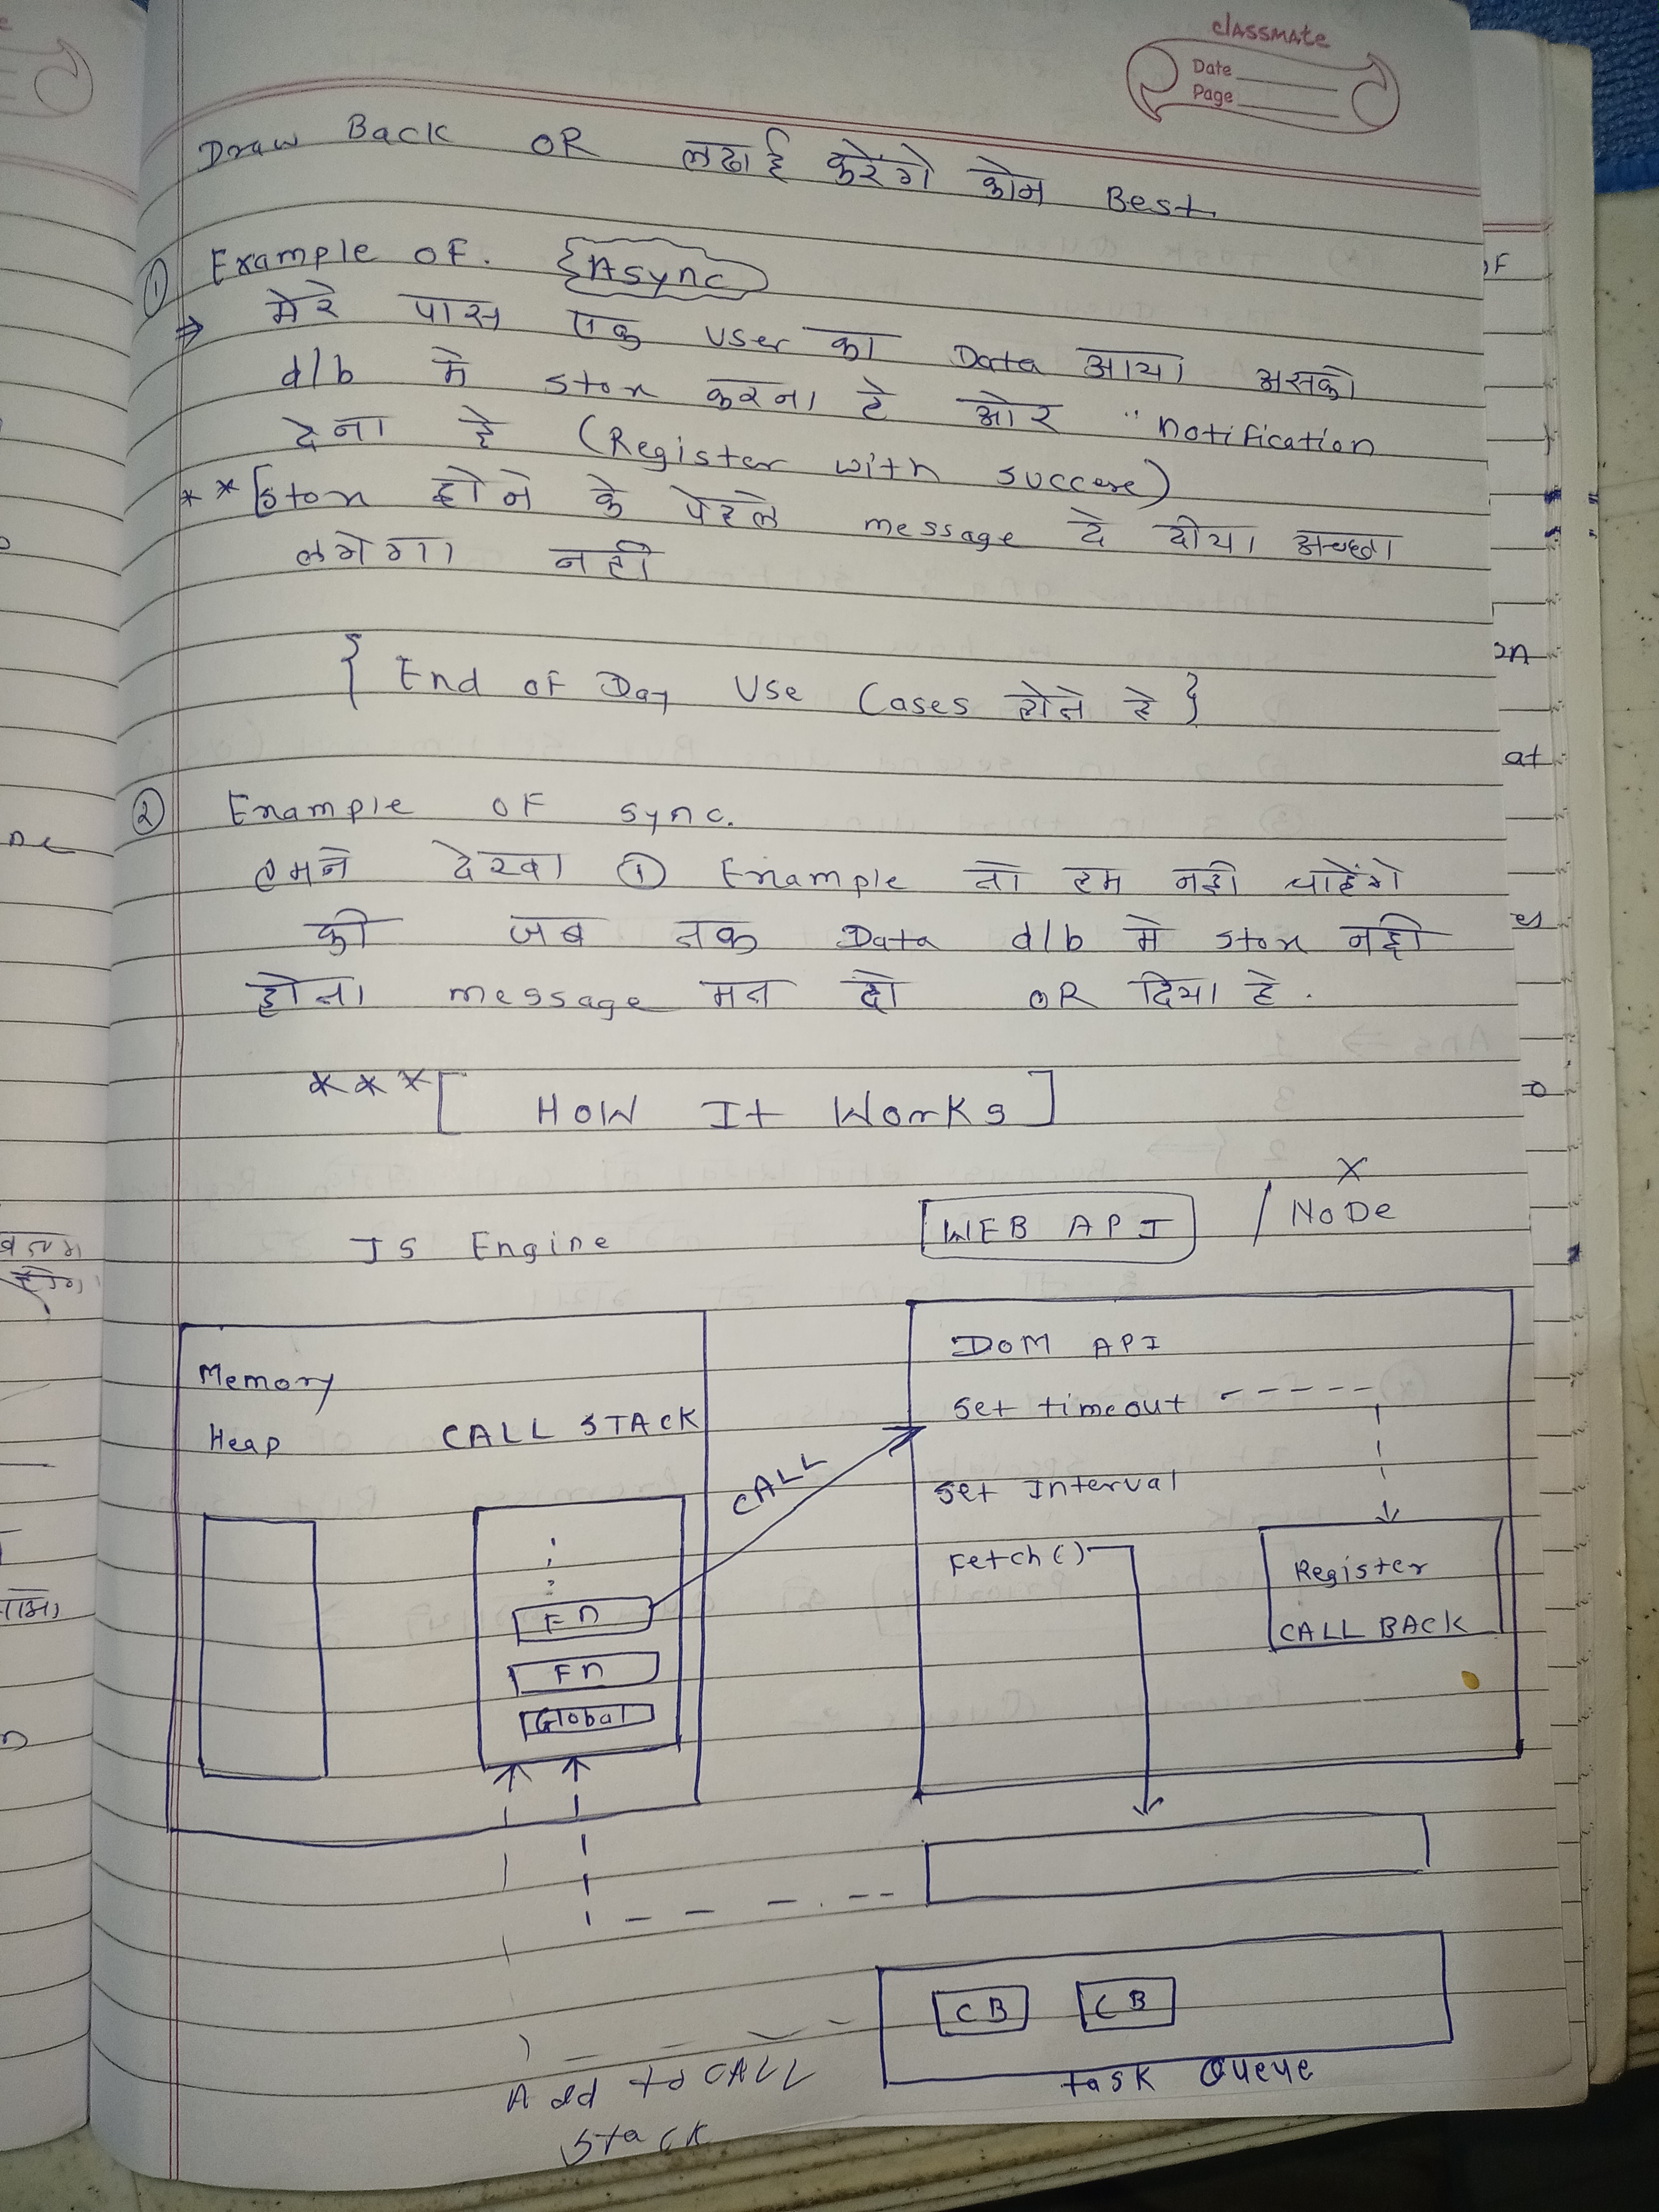 classmate
Date
Page
Draw Back OR लढाई करेंगे कोन Best
① Example OF. {Async}
⇒ मेरे पास एक user का Data आया असको
d/b मे stor करना हे ओर "notification
देना हे (Register with succese)
**[Stor होने के पेहले message दे दीया अच्छा
लगेगा नही
{ End OF Day Use Cases होते हे }
② Example OF sync.
हमने देखा ① Example तो हम नही चाहेंगे
की जब तक Data d/b मे stor नही
होता message मत दो OR दिया हे.
***[ HOW It Works ]
X
JS Engine [WEB API] / NODE
Memory
Heap
CALL STACK
DOM API
Set timeout
Set Interval
Fetch()
CALL
Register
CALL BACK
Fn
Fn
Global
CB CB
task Queue
Add to CALL
Stack